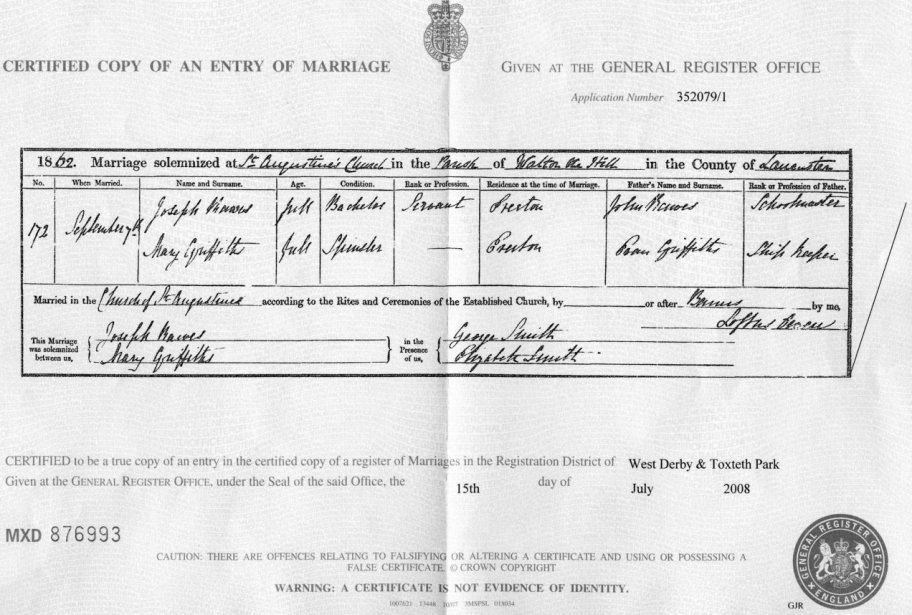 CERTIFIED COPY OF AN ENTRY OF MARRIAGE
GIVEN AT THE GENERAL REGISTER OFFICE
Application Number 352079/1
1862. Marriage solemnized at St Augustine's Church in the Parish of Walton the Hill in the County of Lancaster
No. When Married. Name and Surname. Age. Condition. Rank or Profession. Residence at the time of Marriage. Father's Name and Surname. Rank or Profession of Father.
172 September 7th Joseph Full Bachelor Servant John Schoolmaster
Mary Griffiths Full Spinster — Griffiths Ship Keeper
Married in the Church of St Augustine according to the Rites and Ceremonies of the Established Church, by or after Banns by me,
Loftus
This Marriage was solemnized between us, Joseph
Mary Griffiths
in the Presence of us, George Smith
Elizabeth Smith
CERTIFIED to be a true copy of an entry in the certified copy of a register of Marriages in the Registration District of West Derby & Toxteth Park
Given at the GENERAL REGISTER OFFICE, under the Seal of the said Office, the 15th day of July 2008
MXD 876993
CAUTION: THERE ARE OFFENCES RELATING TO FALSIFYING OR ALTERING A CERTIFICATE AND USING OR POSSESSING A
FALSE CERTIFICATE © CROWN COPYRIGHT
WARNING: A CERTIFICATE IS NOT EVIDENCE OF IDENTITY.
GENERAL REGISTER OFFICE
ENGLAND
GJR